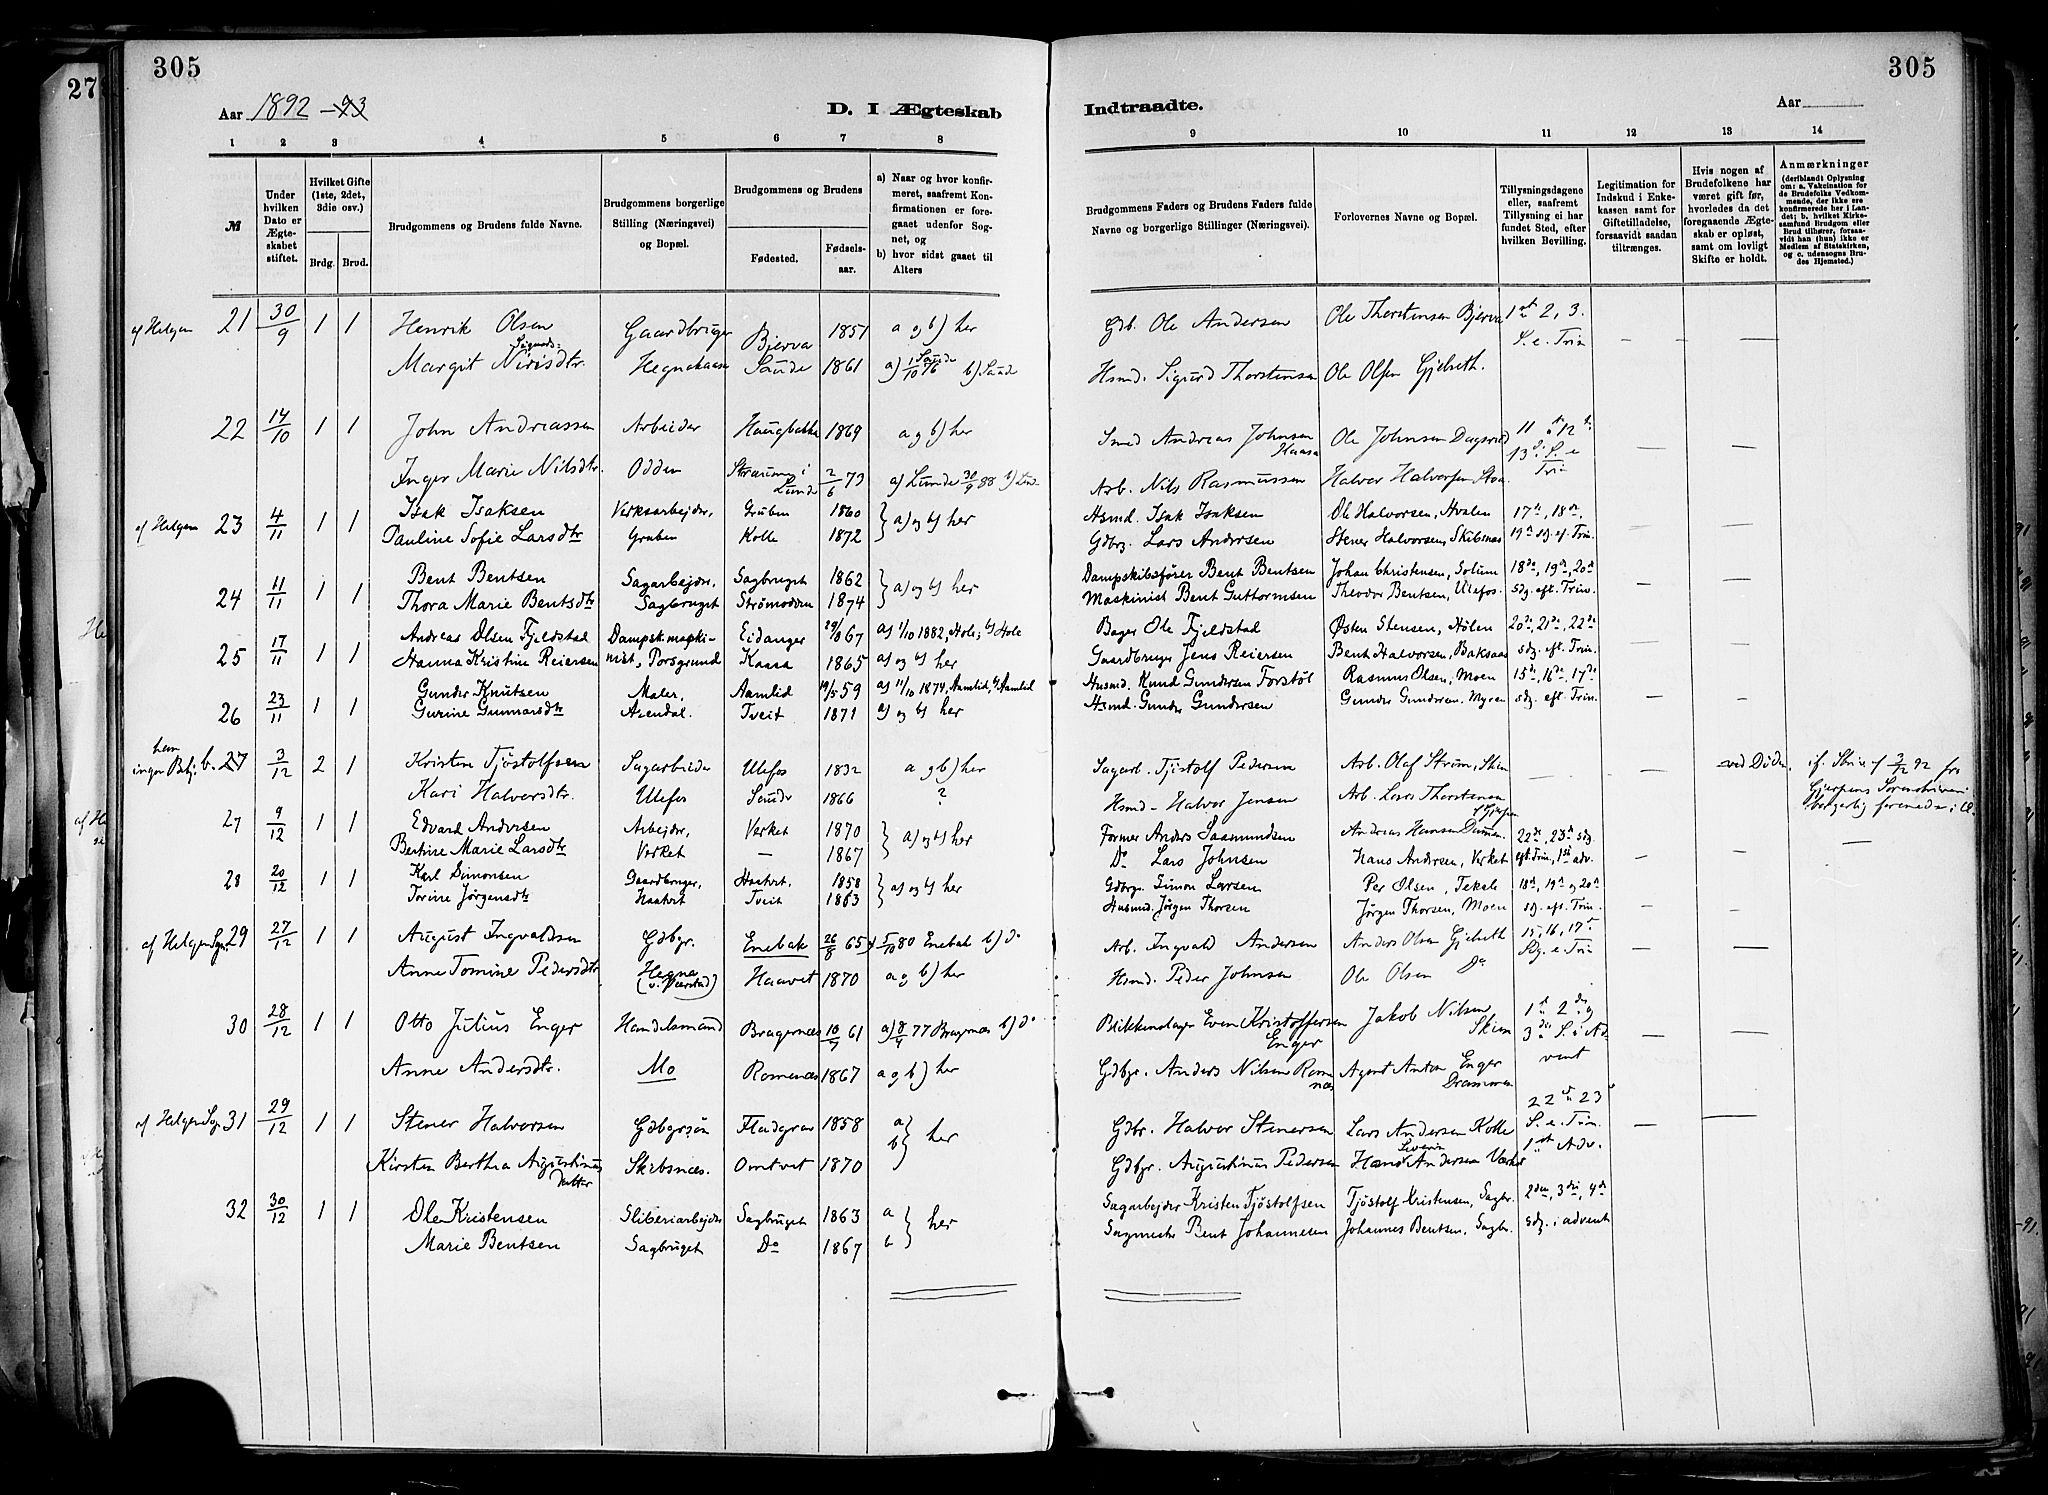 305
305
27
Aar 1892 -93
D. I Ægteskab
Indtraadte.
Aar
1 2 3 4 5 6 7 8
9 10 11 12 13 14
№
Under hvilken Dato er Ægteskabet stiftet.
Hvilket Gifte (1ste, 2det, 3die osv.)
Brdg. Brud.
Brudgommens og Brudens fulde Navne.
Brudgommens borgerlige Stilling (Næringsvei) og Bopæl.
Brudgommens og Brudens
Fødested.
Fødselsaar.
a) Naar og hvor konfirmeret, saafremt Konfirmationen er foregaaet udenfor Sognet, og
b) hvor sidst gaaet til Alters
Brudgommens Faders og Brudens Faders fulde Navne og borgerlige Stillinger (Næringsvei).
Forlovernes Navne og Bopæl.
Tillysningsdagene eller, saafremt Tillysning ei har fundet Sted, efter hvilken Bevilling.
Legitimation for Indskud i Enkekassen samt for Giftetilladelse, forsaavidt saadan tiltrænges.
Hvis nogen af Brudefolkene har været gift før, hvorledes da det foregaaende Ægteskab er opløst, samt om lovligt Skifte er holdt.
Anmærkninger
(deriblandt Oplysning om: a. Vakcination for de Brudefolks Vedkommende, der ikke ere konfirmerede her i Landet; b. hvilket Kirkesamfund Brudgom eller Brud tilhører, forsaavidt han (hun) ikke er Medlem af Statskirken, og c. udensogns Brudes Hjemsted.)
af Helgen 21 30/9 1 1 Henrik Olsen Gaardbruger Bjerva 1851 a og b) her Gdb. Ole Andersen Ole Thorstensen Bjerva 1ste 2, 3.
Sigurds:
Margit Nirisdtr. Hegnahaasen Saude 1861 a) 1/10 76 Saude b) Saude Hsmd. Sigurd Thorstensen Ole Olsen Gjelseth. S. e. Trin
22 14/10 1 1 John Andreassen Arbeider Haugbakka 1869 a og b) her Smed Andreas Johnsen Haasa Ole Johnsen Dagsrud 11 12
Inger Marie Nilsdtr. Odden Straume i Lunde 2/6 73 a) Lunde 30/9 88 b) Arb. Nils Rasmussen Halvor Halvorsen 13de S. e Trin
af Helgen 23 4/11 1 1 Isak Isaksen Verksarbejder, Gruben 1860 a) og b) her Hsmd. Isak Isaksen Ole Halvorsen, Hvalen 17de, 18de,
Pauline Sofie Larsdtr Gruben Kolle 1872 Gdbrg. Lars Andersen Stener Halvorsen, Skibsnæs 19de sdg. ef. Trin.
24 11/11 1 1 Bent Bentsen Sagarbejder, Sagbruget 1862 a) og b) her Dampskibsfører Bent Bentsen Johan Christensen, Solum 18de, 19de, 20de
Thora Marie Bentsdtr Sagbruget Strømodden 1874 Maskinist Bent Guttormsen Theodor Bentsen, Ulefos. sdg. eft. Trin.
25 17/11 1 1 Andreas Olsen Fjeldstad Dampsk.maski- Eidanger 29/10 67 a) 1/10 1882, Hole, b) Hole Bager Ole Fjeldstad Østen Stensen, Hølen 20de, 21de, 22de
Hanna Kristine Reiersen nist, Porsgrund Kaasa 1865 a) og b) her Gaardbruger Jens Reiersen Bent Halvorsen, Baksaas sdg. eft. Trin.
26 23/11 1 1 Gunder Knutsen Maler, Aamlid 19/5 59 a) 11/10 1874, Aamlid, b) Aamlid Husmd. Knud Gundersen Forstøl Rasmus Olsen, Moen 15de, 16de, 17de
Gurine Gunnarsdtr Arendal. Tveit 1871 a) og b) her Hsmd. Gunder Gundersen Gunder Gundersen. Myren sdg. eft. Trin.
b. 27 3/12 2 1 Kristen Tjøstolfsen Sagarbeider Ulefos 1832 a og b) her Sagarb. Tjøstolf Pedersen Arb. Olaf Strøm, Skien ved Døden.
Kari Halvorsdtr. Ulefos Saude 1866 ? Hsmd - Halvor Jensen Arb. Lars Thorstensen Gjerpen
27 9/12 1 1 Edvard Andersen Arbejder, Verket 1870 a) og b) her Former Anders Saamundsen Andreas Hansen 22de, 23de sdg.
Bertine Marie Larsdtr Verket — 1867 Do Lars Johnsen Hans Andersen, Verket eft. Trin, 1ste adv.
28 20/12 1 1 Karl Simonsen Gaardbruger, Haatvet. 1858 a) og b) her Gdbrg. Simon Larsen Per Olsen, Teksle 18de, 19de og 20de
Torine Jørgensdtr Haatvet Tveit 1863 Husmd. Jørgen Thorsen Jørgen Thorsen, Moen sdg. eft. Trin.
af Helgen Sogn 29 27/12 1 1 August Ingvaldsen Gdbgr. Enebak 26/8 65 5/10 80 Enebak b) do Arb. Ingvald Andersen Anders Olsen Gjelseth 15, 16, 17de
Anne Tomine Pedersdtr. Hegna Haavet 1870 a og b) her Hsmd. Peder Johnsen Ole Olsen Do Sdg. e Trin
30 28/12 1 1 Otto Julius Enger Handelsmand Bragernæs 10/7 61 a) 8/4 77 Bragernæs b) do Blikkenslager Even Kristoffersen Enger Jakob Nilsen Skien 1ste 2den og
Anne Andersdtr. Mo Romenæs 1867 a og b) her Gdbgr. Anders Nilsen Romnæs Agent Anton Enger Drammen 3die S. i Advent
af Helgen Sogn 31 29/12 1 1 Stener Halvorsen Gdbgrsøn Fladgrav 1858 a b her Gdbr. Halvor Stenersen Lars Andersen Kolle 22de 23de S. e. Trin.
Kirsten Bertha Augustinusdatter Skibsnæs. Omtvet 1870 Gdbgr. Augustinus Pedersen Hans Severin Andersen Værket 1ste Adv.
32 30/12 1 1 Ole Kristensen Sliberiarbejder Sagbruget 1863 a b her Sagarbejder Kristen Tjøstolfsen Tjøstolf Kristensen, Sagbr. 2den, 3die, 4de
Marie Bentsen Sagbruget Do 1867 Sagmester Bent Johannesen Johannes Bentsen, Sagbr. sdg. i advent